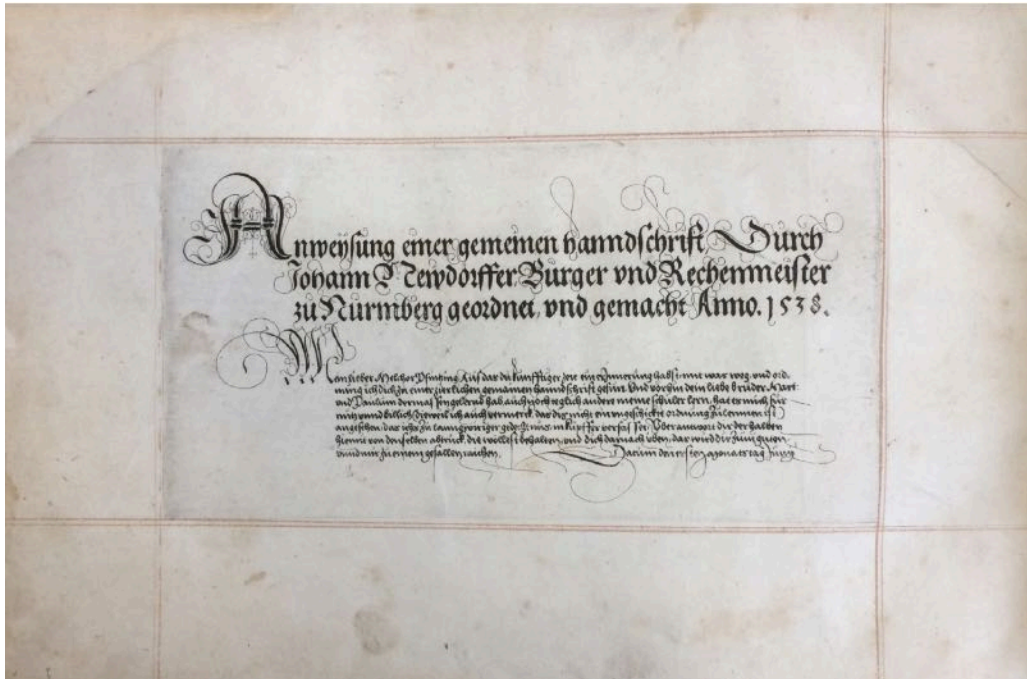 Anweysung einer gemeinen hanndschrift, Durch
Johann Newdorffer, Burger vnd Rechenmeister
zu Nurmberg geordnet, vnd gemacht Anno. 1538.
Mein lieber Melchor Pfintzing Auf das du kunfftiger zeit ein erynnerung habst, mit was weg, vnd ord,
nung ich dich zu einer zierlichen gemainen hanndschrift gefürt, Und vorhin dein liebe brüder Mart:
vnd Paulum dermas seyen gelernt hab, auch noch teglich andere meine schüler lern, hat es mich für
nutz vnnd billich, dieweil ich auch vermerck, das dis nicht ein vngeschickte ordnung zu lernen ist
angesehen, das ichs zu lanngwiriger gedechtnus, in kupffer verfast, Uberantwort dir derhalben
hiemit von denselben abtruck, die wöllest behalten, vnd dich darnach üben, das wird dir zum guten
vnnd mir zu einem gefallen raichen. Datum den ersten monats tag Junij